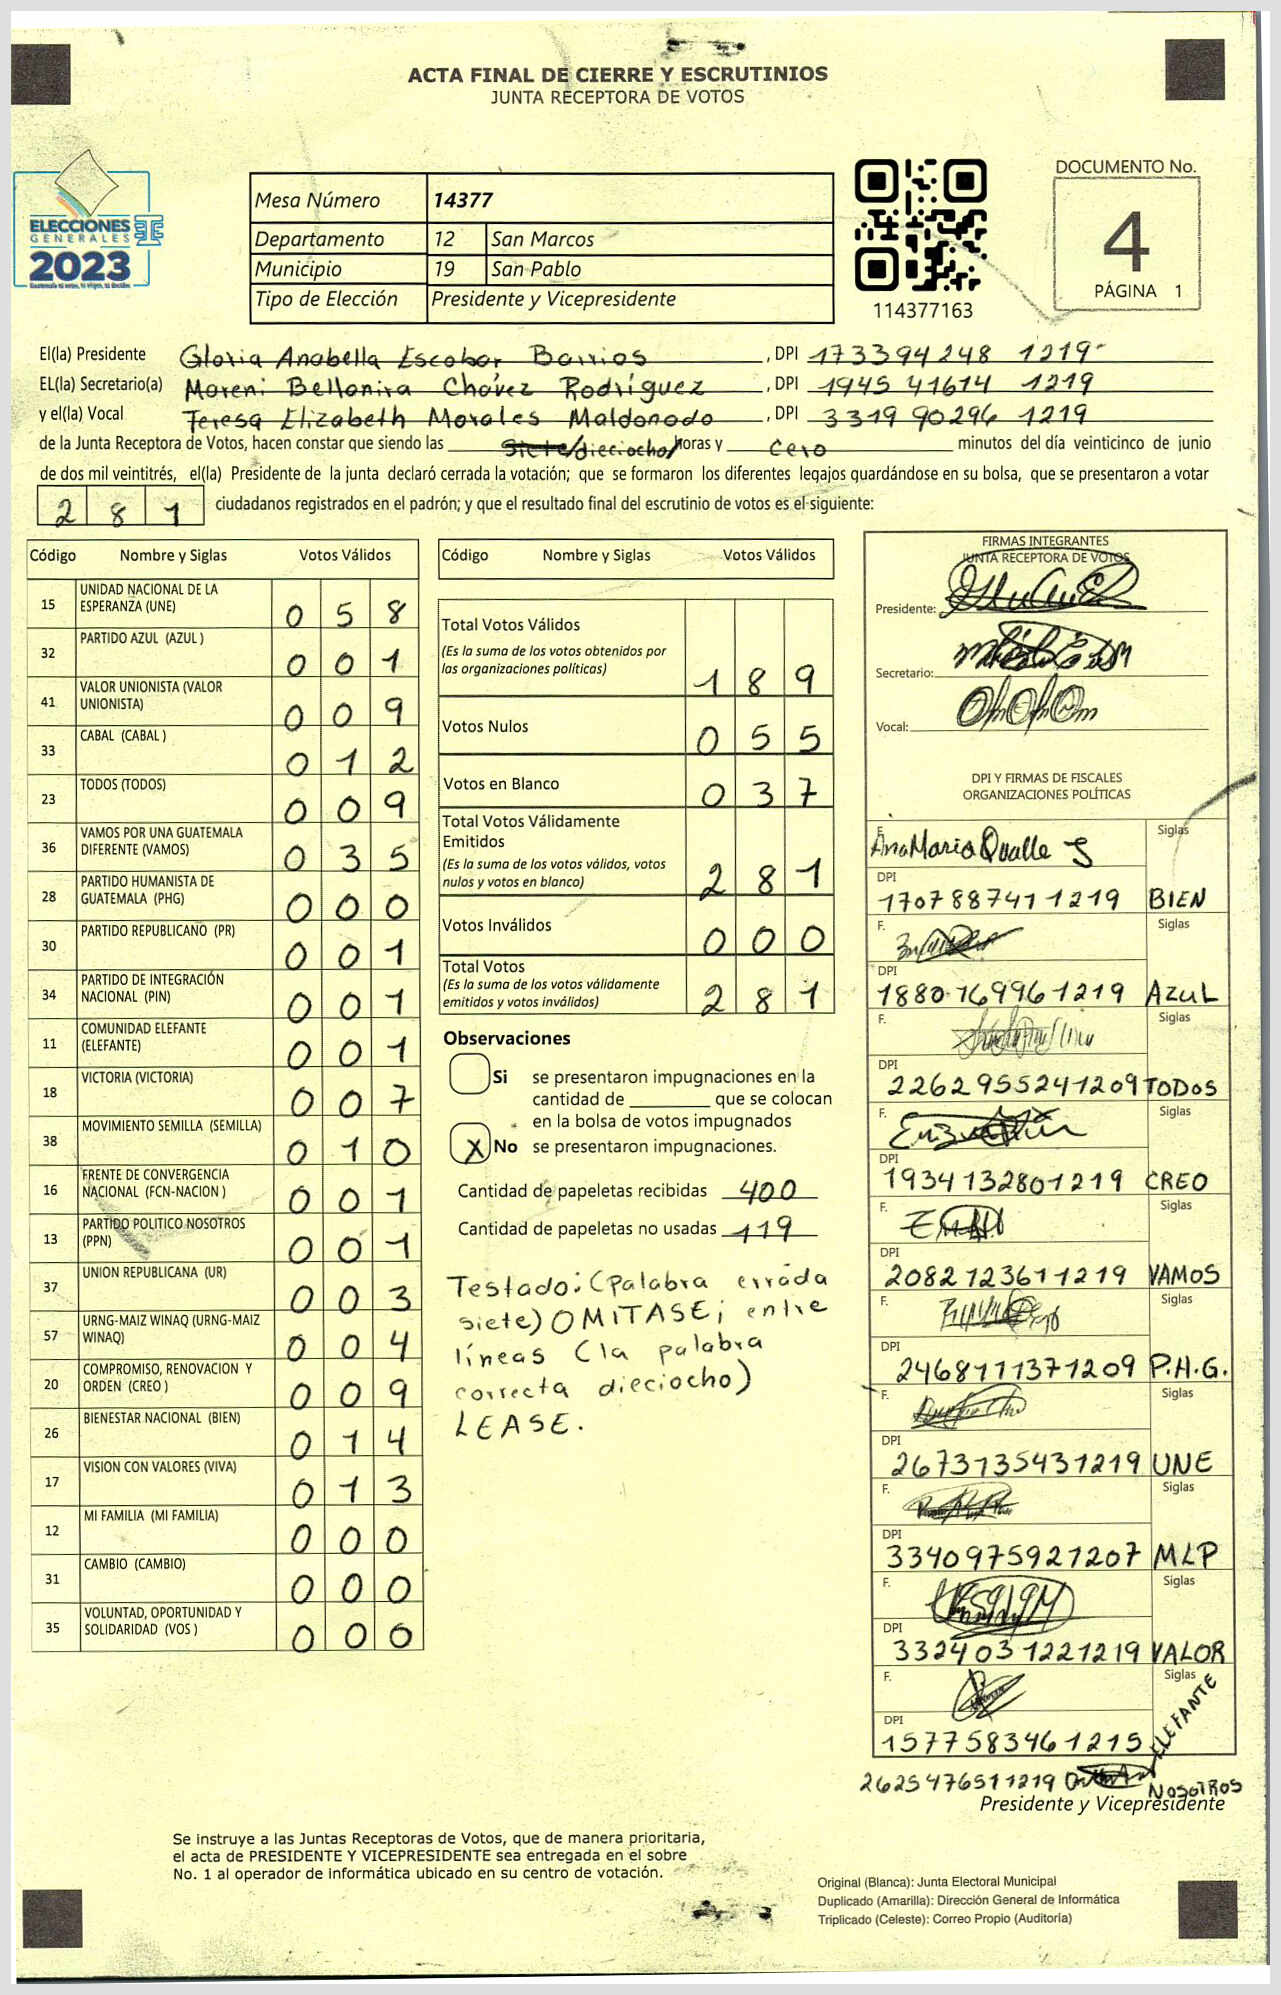 ACTA FINAL DE CIERRE Y ESCRUTINIOS
JUNTA RECEPTORA DE VOTOS
ELECCIONES
GENERALES
2023
Mesa Número 14377
Departamento 12 San Marcos
Municipio 19 San Pablo
Tipo de Elección Presidente y Vicepresidente
114377163
DOCUMENTO No.
4
PÁGINA 1
El(la) Presidente Gloria Anabella Escobar Barrios, DPI 173394248 1219
EL(la) Secretario(a) Moreni Bellanira Chávez Rodríguez, DPI 1945 41614 1219
y el(la) Vocal Teresa Elizabeth Morales Maldonodo, DPI 3319 90296 1219
de la Junta Receptora de Votos, hacen constar que siendo las siete/dieciocho/ horas y cero minutos del día veinticinco de junio
de dos mil veintitrés, el(la) Presidente de la junta declaró cerrada la votación; que se formaron los diferentes legajos guardándose en su bolsa, que se presentaron a votar
2 8 1 ciudadanos registrados en el padrón; y que el resultado final del escrutinio de votos es el siguiente:
Código Nombre y Siglas Votos Válidos
15 UNIDAD NACIONAL DE LA
ESPERANZA (UNE) 0 5 8
32 PARTIDO AZUL (AZUL ) 0 0 1
41 VALOR UNIONISTA (VALOR
UNIONISTA) 0 0 9
33 CABAL (CABAL ) 0 1 2
23 TODOS (TODOS) 0 0 9
36 VAMOS POR UNA GUATEMALA
DIFERENTE (VAMOS) 0 3 5
28 PARTIDO HUMANISTA DE
GUATEMALA (PHG) 0 0 0
30 PARTIDO REPUBLICANO (PR) 0 0 1
34 PARTIDO DE INTEGRACIÓN
NACIONAL (PIN) 0 0 1
11 COMUNIDAD ELEFANTE
(ELEFANTE) 0 0 1
18 VICTORIA (VICTORIA) 0 0 7
38 MOVIMIENTO SEMILLA (SEMILLA) 0 1 0
16 FRENTE DE CONVERGENCIA
NACIONAL (FCN-NACION ) 0 0 1
13 PARTIDO POLITICO NOSOTROS
(PPN) 0 0 1
37 UNION REPUBLICANA (UR) 0 0 3
57 URNG-MAIZ WINAQ (URNG-MAIZ
WINAQ) 0 0 4
20 COMPROMISO, RENOVACION Y
ORDEN (CREO ) 0 0 9
26 BIENESTAR NACIONAL (BIEN) 0 1 4
17 VISION CON VALORES (VIVA) 0 1 3
12 MI FAMILIA (MI FAMILIA) 0 0 0
31 CAMBIO (CAMBIO) 0 0 0
35 VOLUNTAD, OPORTUNIDAD Y
SOLIDARIDAD (VOS ) 0 0 0
Código Nombre y Siglas Votos Válidos
Total Votos Válidos
(Es la suma de los votos obtenidos por
las organizaciones políticas) 1 8 9
Votos Nulos 0 5 5
Votos en Blanco 0 3 7
Total Votos Válidamente
Emitidos
(Es la suma de los votos válidos, votos
nulos y votos en blanco) 2 8 1
Votos Inválidos 0 0 0
Total Votos
(Es la suma de los votos válidamente
emitidos y votos inválidos) 2 8 1
Observaciones
Si se presentaron impugnaciones en la
cantidad de ________ que se colocan
en la bolsa de votos impugnados
X No se presentaron impugnaciones.
Cantidad de papeletas recibidas 400
Cantidad de papeletas no usadas 119
Testado: (palabra errada
siete) OMITASE; entre
líneas (la palabra
correcta dieciocho)
LEASE.
FIRMAS INTEGRANTES
JUNTA RECEPTORA DE VOTOS
Presidente:
Secretario:
Vocal:
DPI Y FIRMAS DE FISCALES
ORGANIZACIONES POLÍTICAS
F. Ana Maria Ovalle Siglas
DPI
1707887411219 BIEN
F. Siglas
DPI
1880169961219 AZUL
F. Siglas
DPI
2262955241209 TODOS
F. Siglas
DPI
1934132801219 CREO
F. Siglas
DPI
2082123611219 VAMOS
F. Siglas
DPI
2468111371209 P.H.G.
F. Siglas
DPI
2673135431219 UNE
F. Siglas
DPI
3340975921207 MLP
F. Siglas
DPI
3324031221219 VALOR
F. Siglas
DPI
1577583461215 ELEFANTE
2625476511219 NOSOTROS
Presidente y Vicepresidente
Se instruye a las Juntas Receptoras de Votos, que de manera prioritaria,
el acta de PRESIDENTE Y VICEPRESIDENTE sea entregada en el sobre
No. 1 al operador de informática ubicado en su centro de votación.
Original (Blanca): Junta Electoral Municipal
Duplicado (Amarilla): Dirección General de Informática
Triplicado (Celeste): Correo Propio (Auditoría)